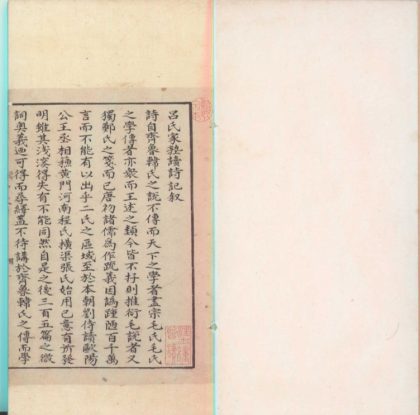 呂氏家塾讀詩記叙
詩自齊魯韓氏之說不傳而天下之學者盡宗毛氏毛氏
之學傳者亦衆而王述之類今皆不存則推衍毛說者又
獨鄭氏之箋而已唐初諸儒為作疏義因譌踵陋百千萬
言而不能有以出乎二氏之區域至於本朝劉侍讀歐陽
公王丞相蘇黃門河南程氏橫渠張氏始用已意有所發
明雖其淺深得失有不能同然自是之後三百五篇之微
詞奥義廼可得而尋繹蓋不待講於齊魯韓氏之傳而學